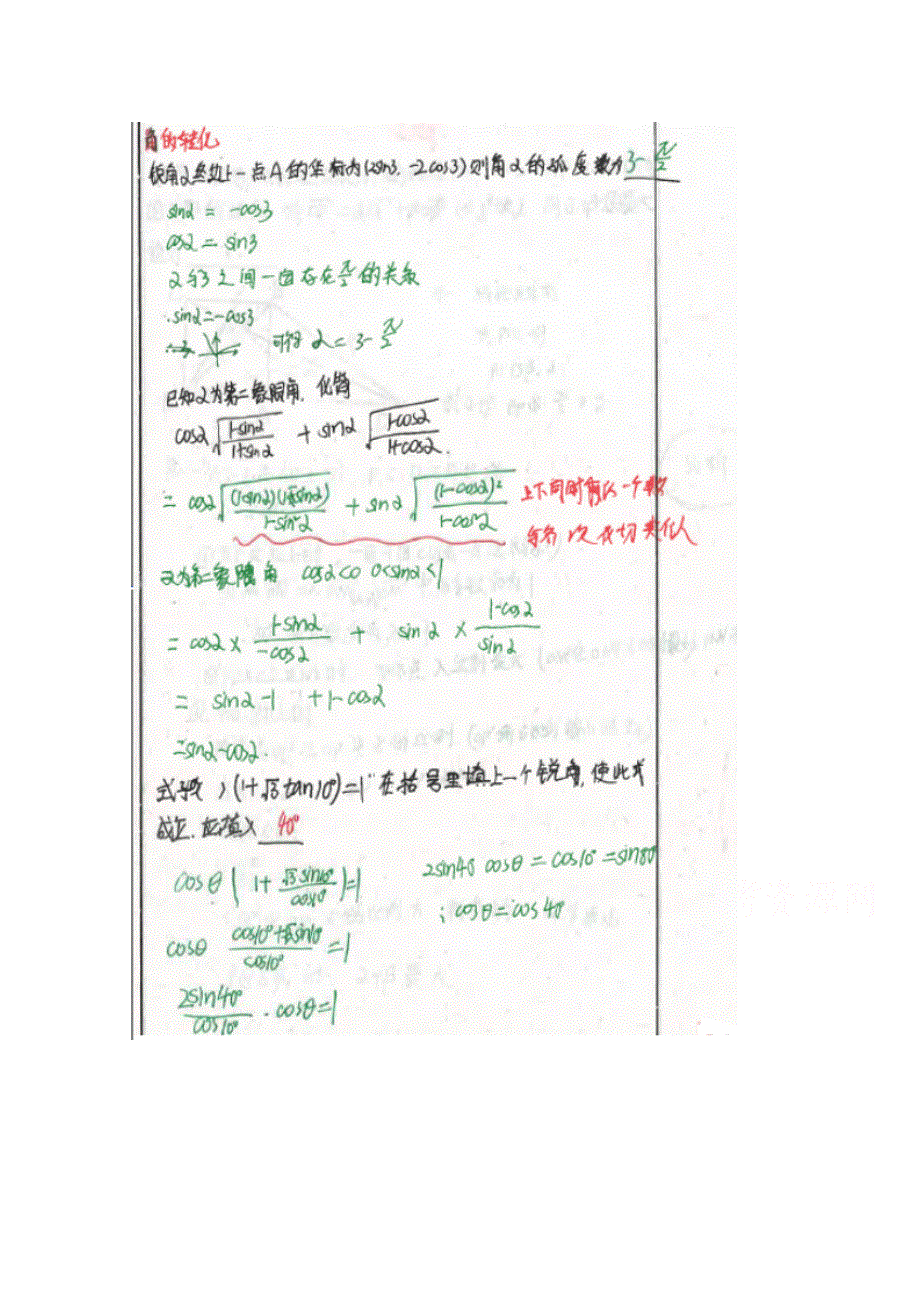 角的转化
锐角α终边上一点A的坐标为(2sin3, -2cos3)则角α的弧度数为 3-π/2
sinα = -cos3
cosα = sin3
α与3之间一定存在π/2的关系
sinα=-cos3
可得 α = 3-π/2
已知α为第二象限角, 化简
cosα√((1-sinα)/(1+sinα)) + sinα√((1-cosα)/(1+cosα)).
= cosα√((1-sinα)(1-sinα)/(1-sin²α)) + sinα√((1-cosα)²/(1-cos²α)) 上下同时乘以一个数
α为第二象限角 cosα<0 0<sinα<1
= cosα × (1-sinα)/(-cosα) + sinα × (1-cosα)/sinα
= sinα-1 + 1-cosα
=sinα-cosα.
式子cos( )(1+√3tan10°)=1 在括号里填上一个锐角, 使此式
成立, 应填入 40°
cosθ(1+ √3sin10°/cos10°)=1 2sin40°cosθ = cos10° = sin80°
∴cosθ = cos40°
cosθ (cos10°+√3sin10°)/cos10° = 1
2sin40°/cos10° · cosθ=1
资源网